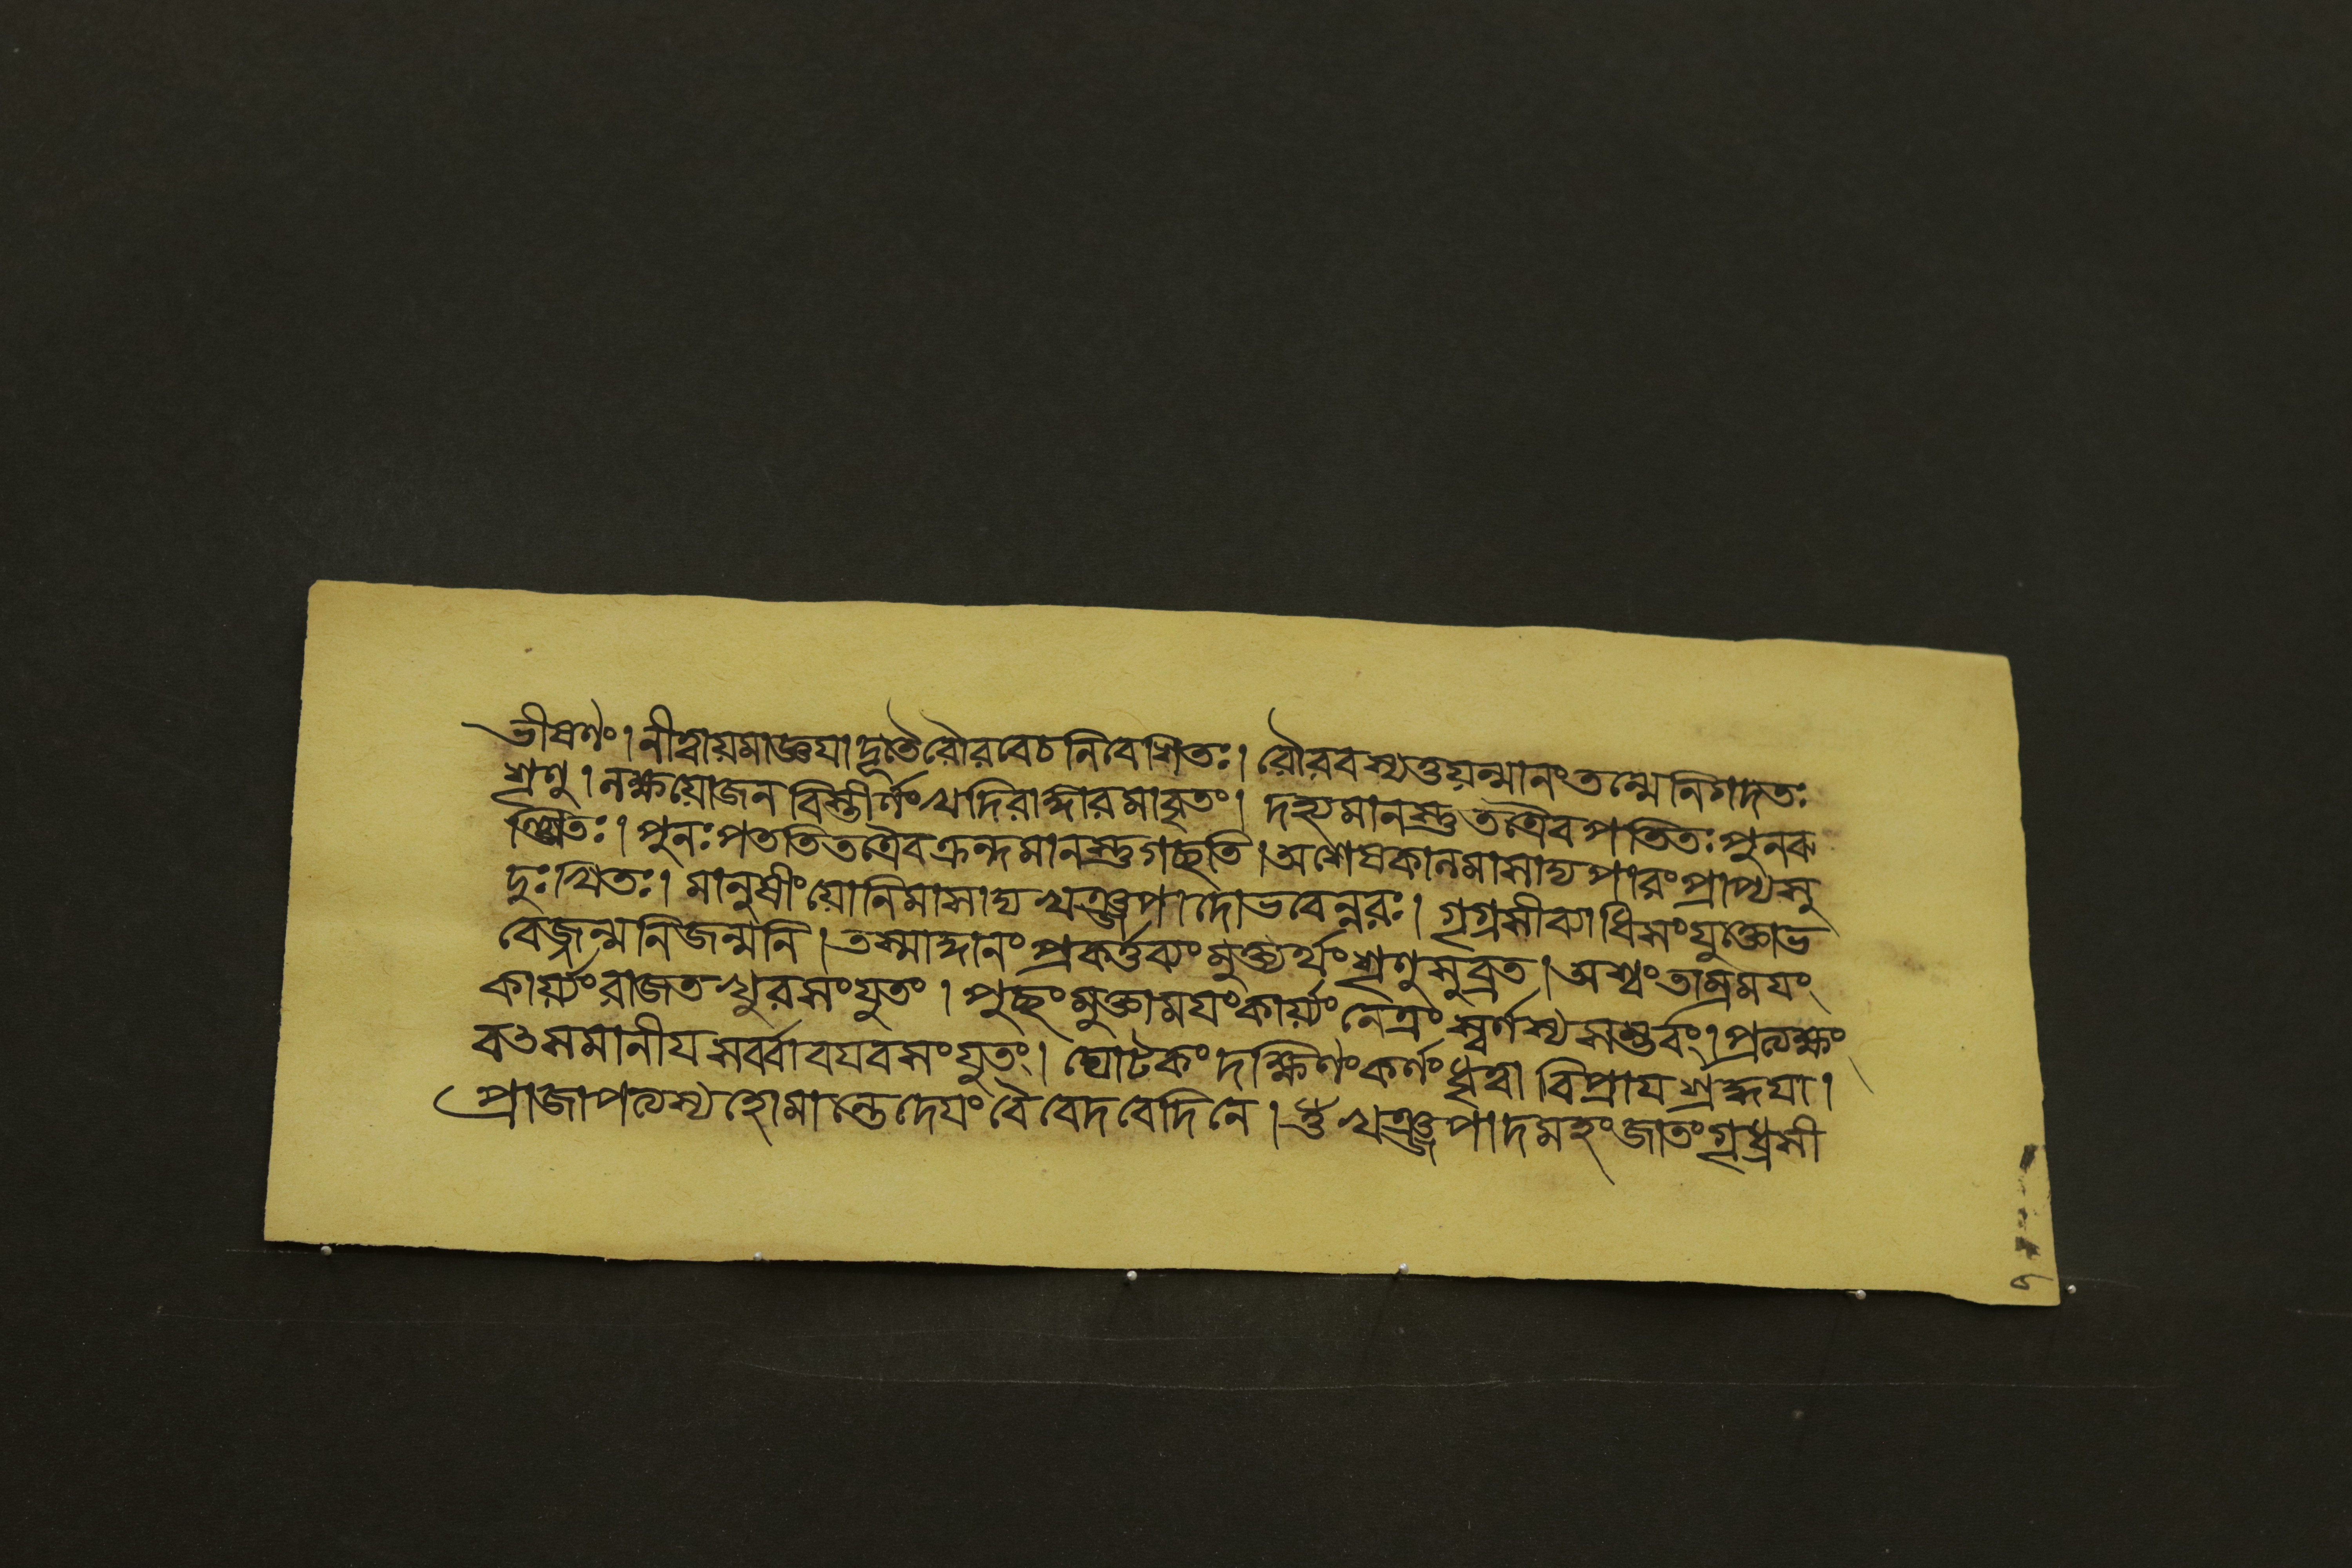 ভীষণং। নীত্বায়মাজ্ঞযাদূতৈরৌরবেচনিবেশিতঃ। রৌরবস্যতুযন্মানংতন্মেনিগদতঃ
শৃণু। লক্ষয়োজনবিস্তীর্ণংখদিরাঙ্গারমাবৃতং। দহ্যমানস্তুতত্রৈবপতিতঃপুনরু
ত্থিতঃ। পুনঃপততিতত্রৈবক্রন্দমানস্তুগচ্ছতি। অশেষকালমাসাদ্যপারংপ্রাপ্যসু
দুঃখিতঃ। মানুষীংয়োনিমাসাদ্যখঞ্জপাদোভবেন্নরঃ। গৃধ্রসীব্যাধিসংযুক্তোভ
বেজ্জন্মনিজন্মনি। তস্মাদ্দানংপ্রকর্ত্তব্যংমুক্ত্যর্থংশৃণুসুব্রত। অশ্বংতাম্রময়ং
কার্য্যংরাজতখুরসংযুতং। পুচ্ছংমুক্তাময়ংকার্য্যংনেত্রংস্বর্ণস্যসম্ভবং। প্রত্যক্ষং
বওসমানীযসর্ব্বাবযবসংযুতং। ঘোটকংদক্ষিণংকর্ণংধৃত্বাবিপ্রাযশ্রদ্ধযা।
প্রাজাপত্যস্যহোমান্তেদেযংবৈবেদবেদিনে। ওঁখঞ্জপাদমহংজাতংগৃধ্রসী